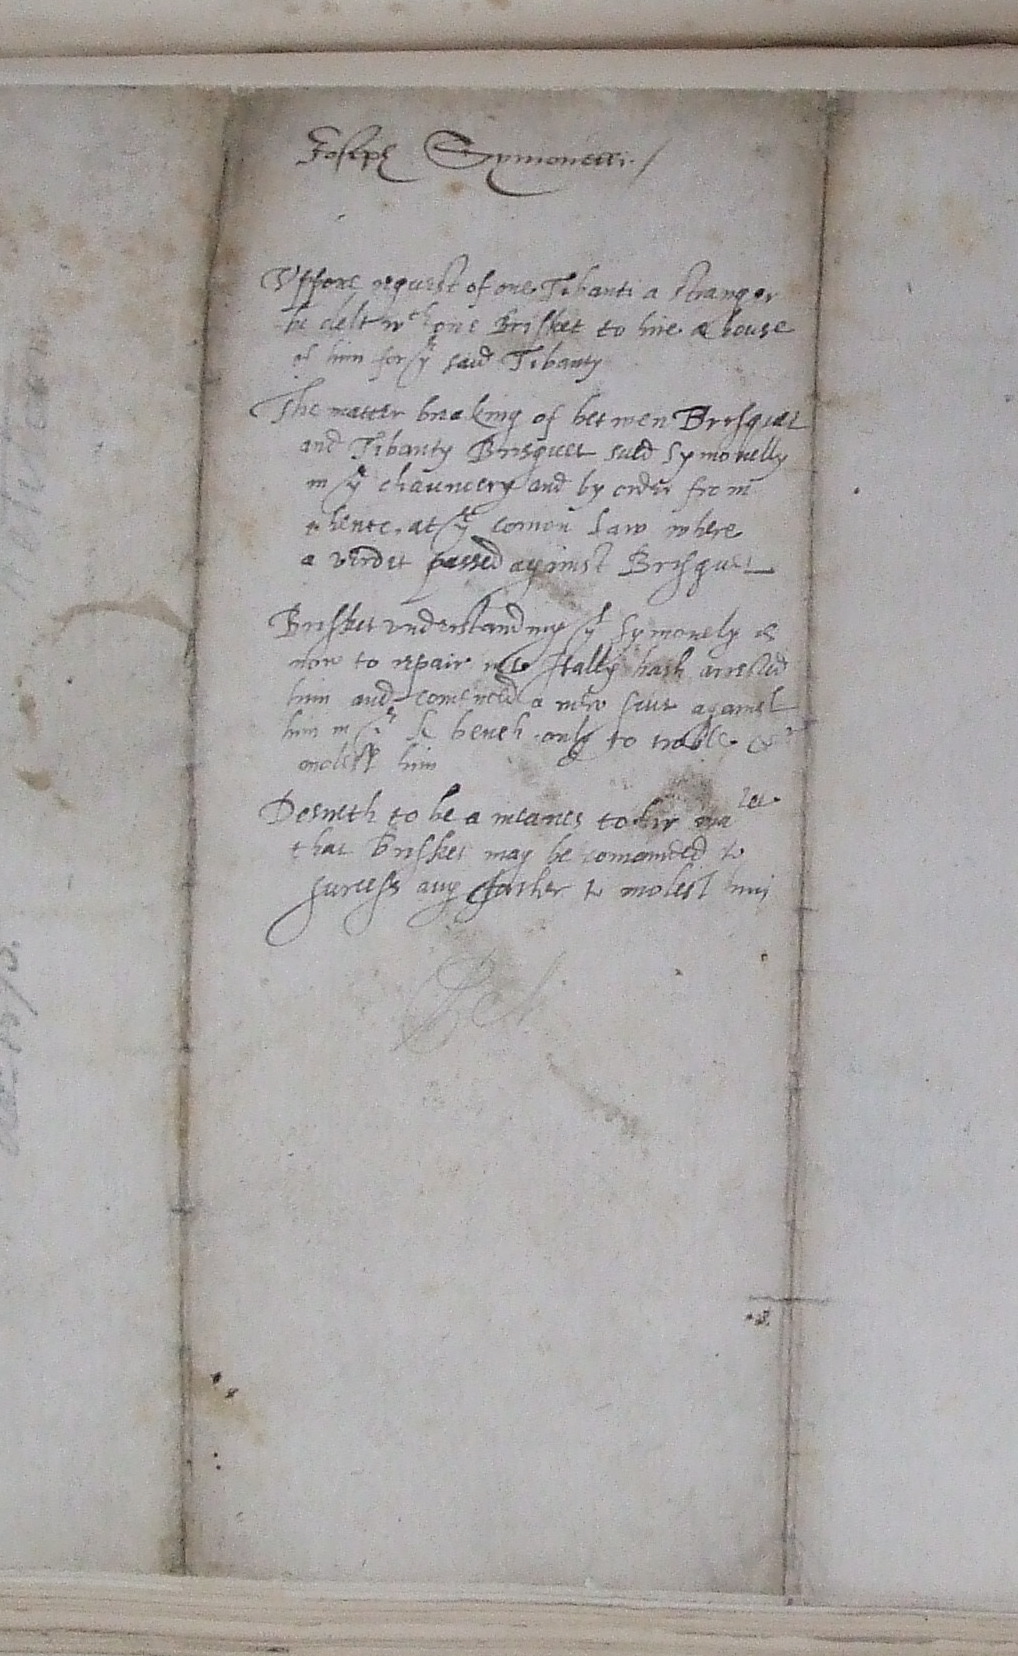 Joseph Symonelli./
Uppone request of one Tibanti a stranger
he delt wth one Brisket to hire a house
of him for ye said Tibanty
The matter breaking of betwen Brysquet
and Tibanty Brisquet sued Symonelly
in ye chauncery and by order from
thence, at ye comon Law where
a verdit passed against Brysquet
Brisket understanding yt Symonely is
now to repair into Itally hath arrested
him and comenced a new suit against
him in ye bench only to troble &
molest him
Desireth to be a meanes to hir matie
that Brisket may be comanded to
surcess any farther to molest him